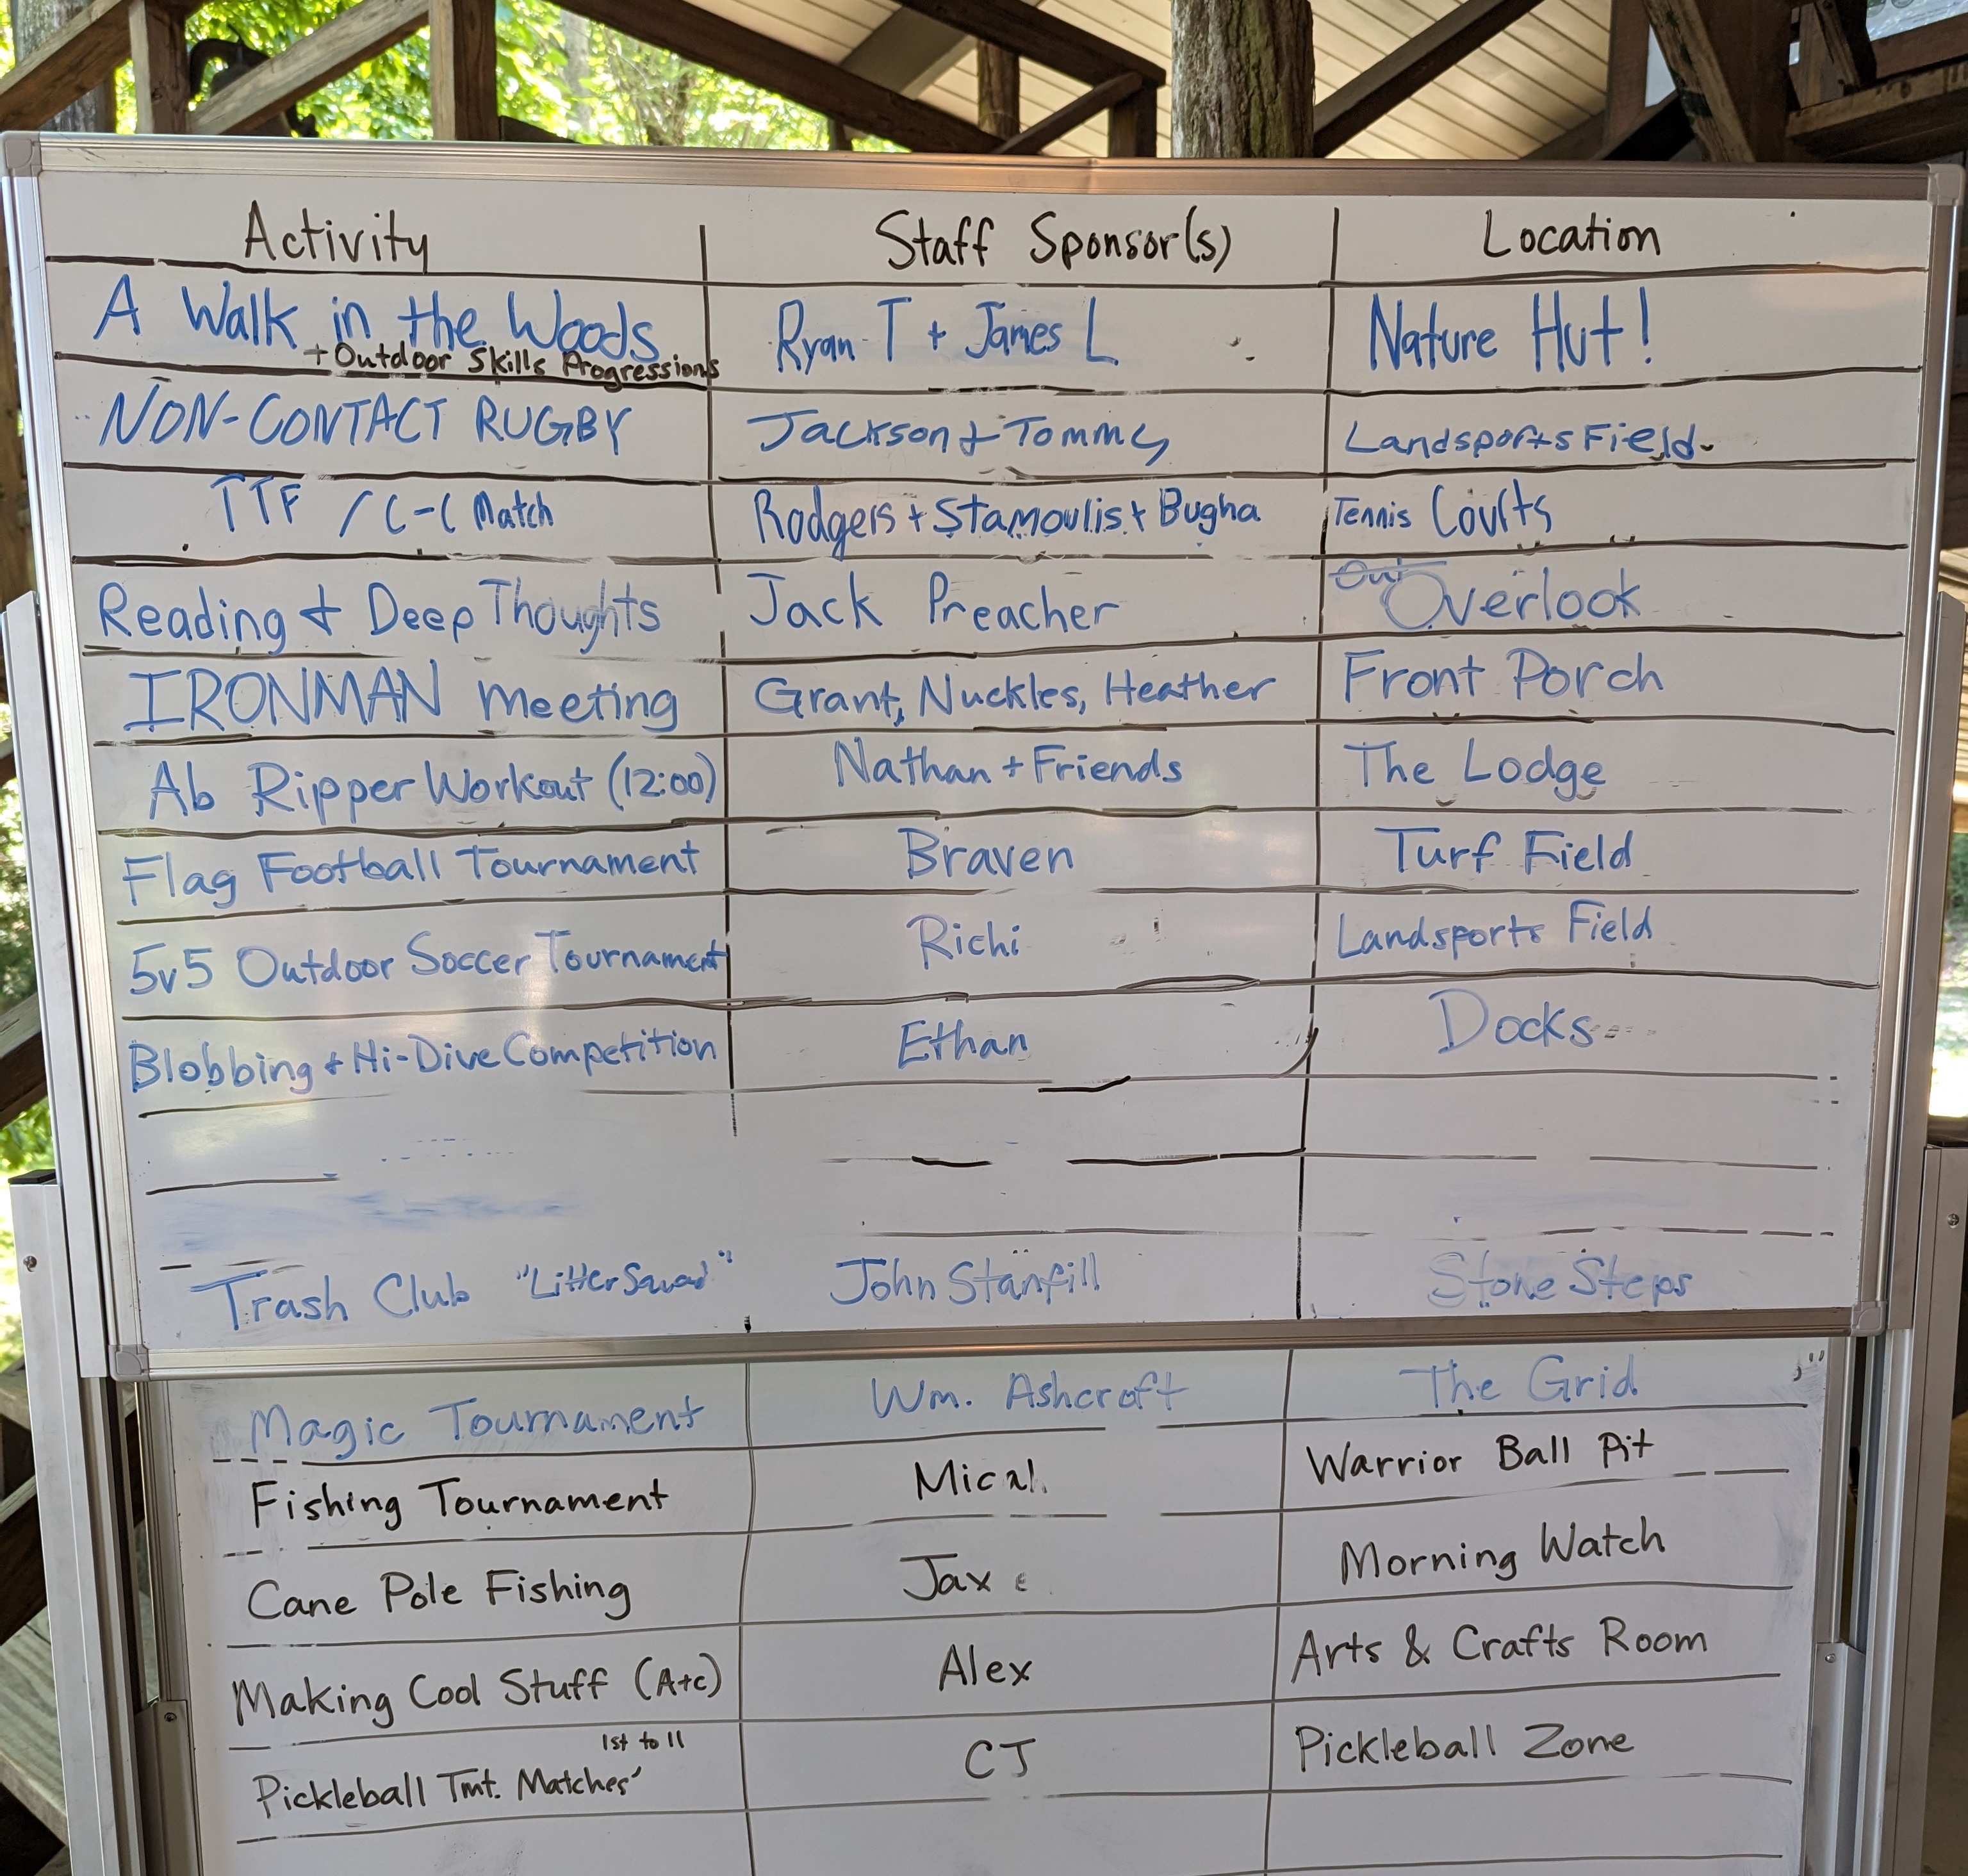 Activity Staff Sponsor(s) Location
A Walk in the Woods Ryan T + James L Nature Hut!
+ Outdoor Skills Progressions
NON-CONTACT RUGBY Jackson + Tommy Landsports Field
TTF / C-C Match Rodgers + Stamoulis + Bugha Tennis Courts
Reading + Deep Thoughts Jack Preacher Overlook
IRONMAN meeting Grant, Nuckles, Heather Front Porch
Ab Ripper Workout (12:00) Nathan + Friends The Lodge
Flag Football Tournament Braven Turf Field
5v5 Outdoor Soccer Tournament Richi Landsports Field
Blobbing + Hi-Dive Competition Ethan Docks
Trash Club "Litter Squad" John Stanfill Stone Steps
Magic Tournament Wm. Ashcroft The Grid
Fishing Tournament Mical Warrior Ball Pit
Cane Pole Fishing Jax Morning Watch
Making Cool Stuff (A+C) Alex Arts & Crafts Room
1st to 11
Pickleball Tmt. Matches CJ Pickleball Zone